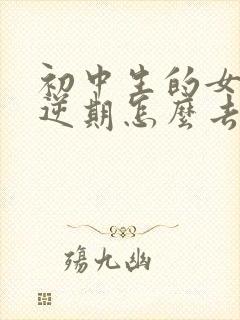 初中生的女
逆期怎麼去
殤九幽